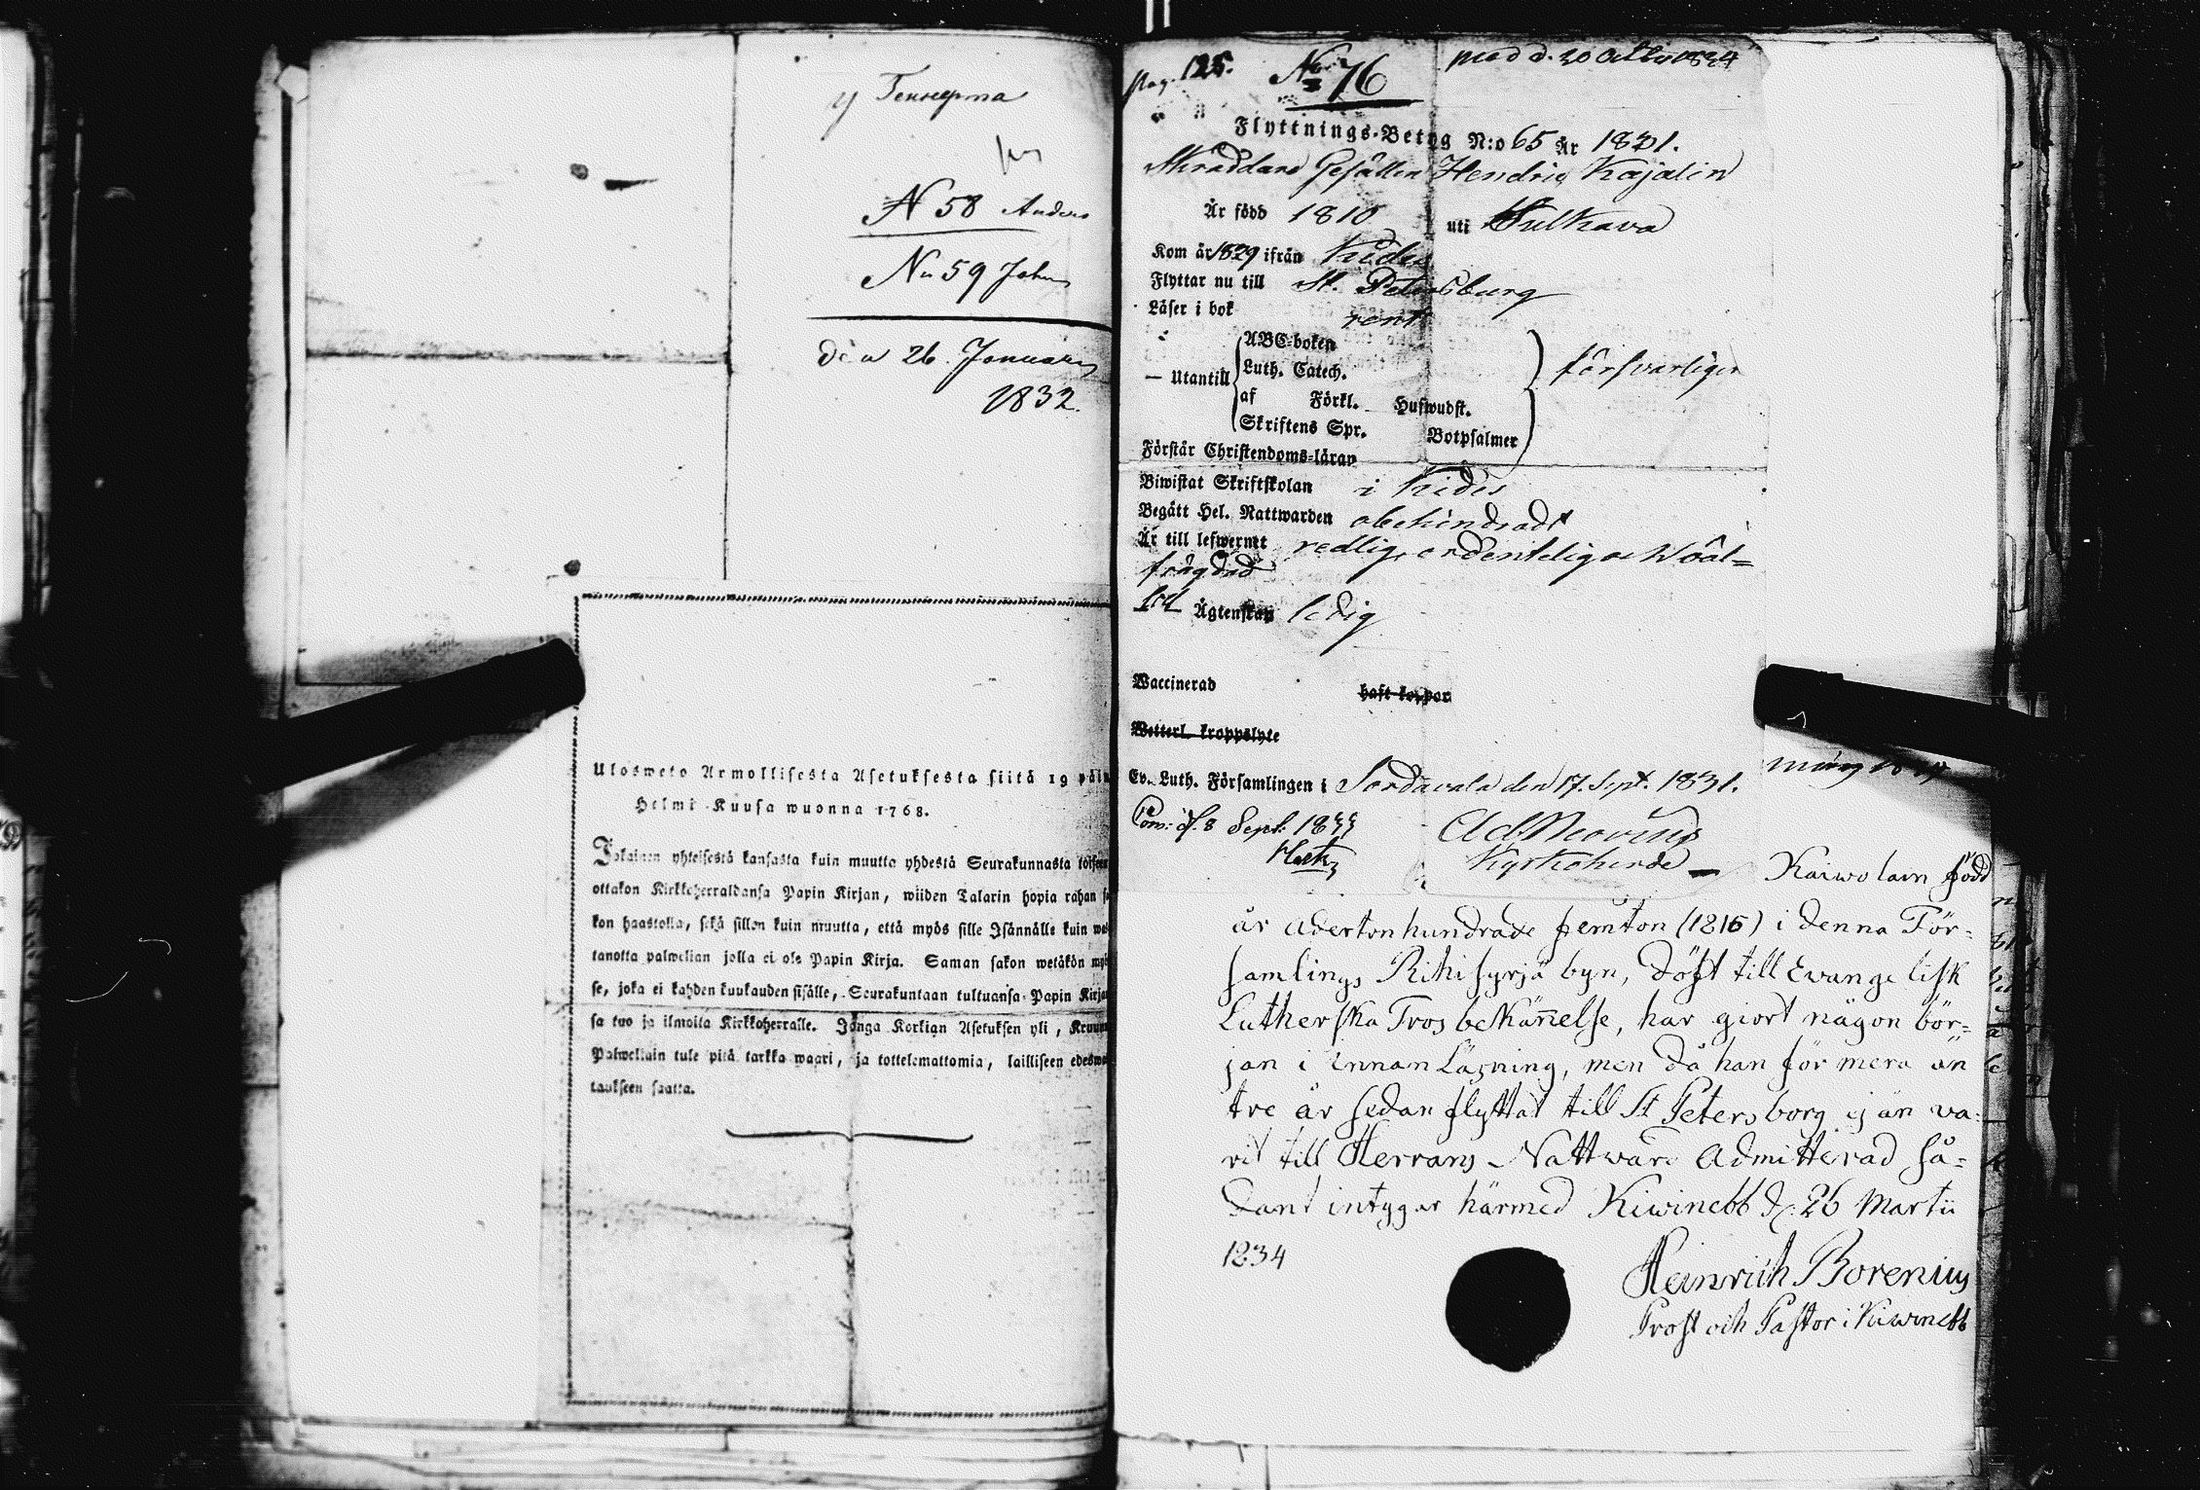 у Геннерта
N 58 Anders
No 59 Johan
den 26. Januari
1832.
Ulosweto Armollisesta Asetuksesta siitä 19 päiw
Helmi-Kuusa wuonna 1768.
Jokainen yhteisestä kansasta kuin muutta yhdestä Seurakunnasta toiseen
ottakon Kirkkoherraldansa Papin Kirjan, wiiden Talarin hopia rahan sa
kon haastolla, sekä sillen kuin muutta, että myös sille Isännälle kuin was
tanotta palwelian jolla ei ole Papin Kirja. Saman sakon wetäkön myös
se, joka ei kahden kuukauden sisälle, Seurakuntaan tultuansa Papin Kirjan
sa tuo ja ilmoita Kirkkoherralle. Jonga Korkian Asetuksen yli, Kruunun
Palweliain tule pitä tarkka waari, ja tottelemattomia, lailliseen edeswas
taukseen saatta.
pag. 125. No 76 prod d. 30 1834
Flyttnings-Betyg N:o 65 År 1831.
Skräddare Gesällen Hendric Kajalin
Är född 1810 uti Sulkava
Kom år 1829 ifrån Kides
Flyttar nu till St. Petersburg
Läser i bok rent
— Utantill ABC-boken
Luth. Catech. försvarliga
af Förkl. Huswudst.
Skriftens Spr. Botpsalmer
Förstår Christendoms-läran
Biwistat Skriftskolan i Kides
Begått Hel. Nattwarden obehindradt
Är till lefwernet redlig, ordentelig o Wäl-
frägdad
Ägtenskap ledig
Waccinerad haft koppor
Wetterl. kroppslyte
Ev. Luth. Församlingen i Sordavala den 17. Sept. 1831.
d. 8 Sept. 1833
Kyrkoherde
Kaiwolain född
år adertonhundrade femton (1815) i denna För-
samlings Rihisyrjä byn, döpt till Evangelisk
Lutherska Trosbekäñelse, har giort någon bör-
jan i Innanläsning, men då han för mera än
tre år sedan flyttat till St Petersborg ej än va-
rit till Herrans Nattward Admitterad så-
dant intygar härmed Kiwinebb d. 26 Martii
1834
Heinrich Borenius
Prost och Pastor i Kiwinebb